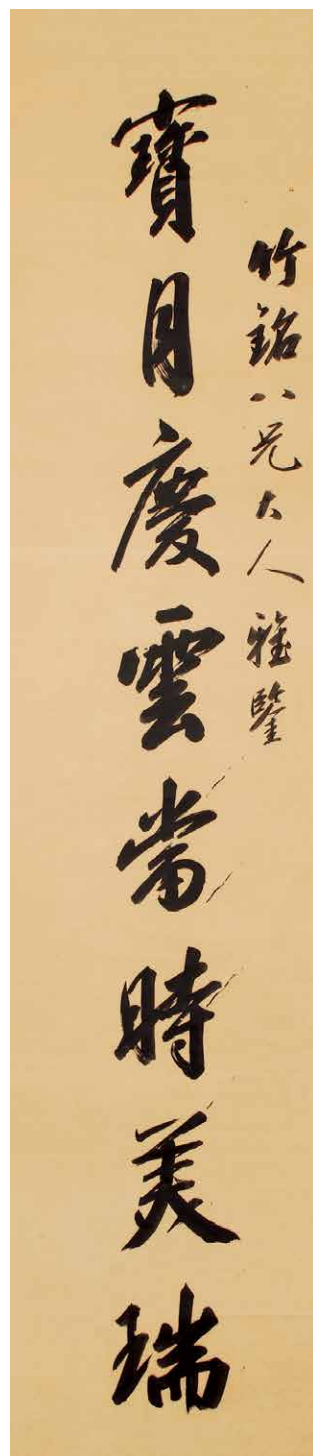 竹銘八兄大人雅鑒
寶月慶雲當時美瑞